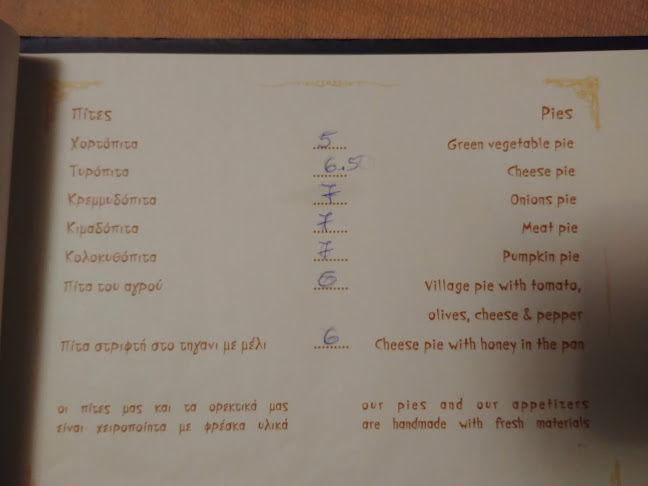 Πίτες Pies
Χορτόπιτα 5 Green vegetable pie
Τυρόπιτα 6.5 Cheese pie
Κρεμμυδόπιτα 7 Onions pie
Κιμαδόπιτα 7 Meat pie
Κολοκυθόπιτα 7 Pumpkin pie
Πίτα του αγρού 6 Village pie with tomato,
olives, cheese & pepper
Πίτα στριφτή στο τηγανι με μέλι 6 Cheese pie with honey in the pan
οι πίτες μας και τα ορεκτικά μας our pies and our appetizers
είναι χειροποίητα με φρέσκα υλικά are handmade with fresh materials